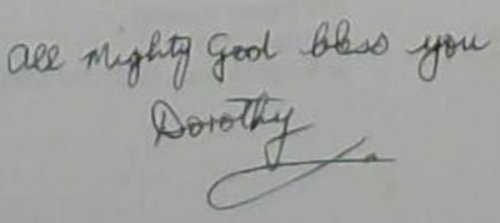 All Mighty God bless you
Dorothy